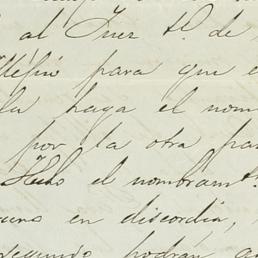 al Juez tl. de
para que e
la haga el nom
por la otra par
Hecho el nombramt.
uno en discordia,
segundo podran a